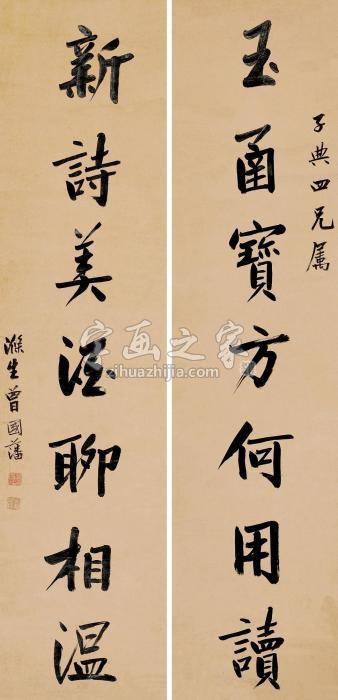 子典四兄属
玉函寶方何用讀
新詩美酒聊相温
滌生曾國藩
字画之家
huihuazhijia.com